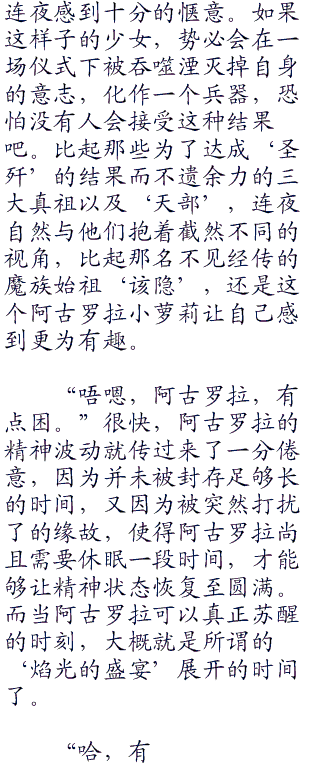 连夜感到十分的惬意。如果
这样子的少女，势必会在一
场仪式下被吞噬湮灭掉自身
的意志，化作一个兵器，恐
怕没有人会接受这种结果
吧。比起那些为了达成‘圣
歼’的结果而不遗余力的三
大真祖以及‘天部’，连夜
自然与他们抱着截然不同的
视角，比起那名不见经传的
魔族始祖‘该隐’，还是这
个阿古罗拉小萝莉让自己感
到更为有趣。
“唔嗯，阿古罗拉，有
点困。”很快，阿古罗拉的
精神波动就传过来了一分倦
意，因为并未被封存足够长
的时间，又因为被突然打扰
了的缘故，使得阿古罗拉尚
且需要休眠一段时间，才能
够让精神状态恢复至圆满。
而当阿古罗拉可以真正苏醒
的时刻，大概就是所谓的
‘焰光的盛宴’展开的时间
了。
“哈，有